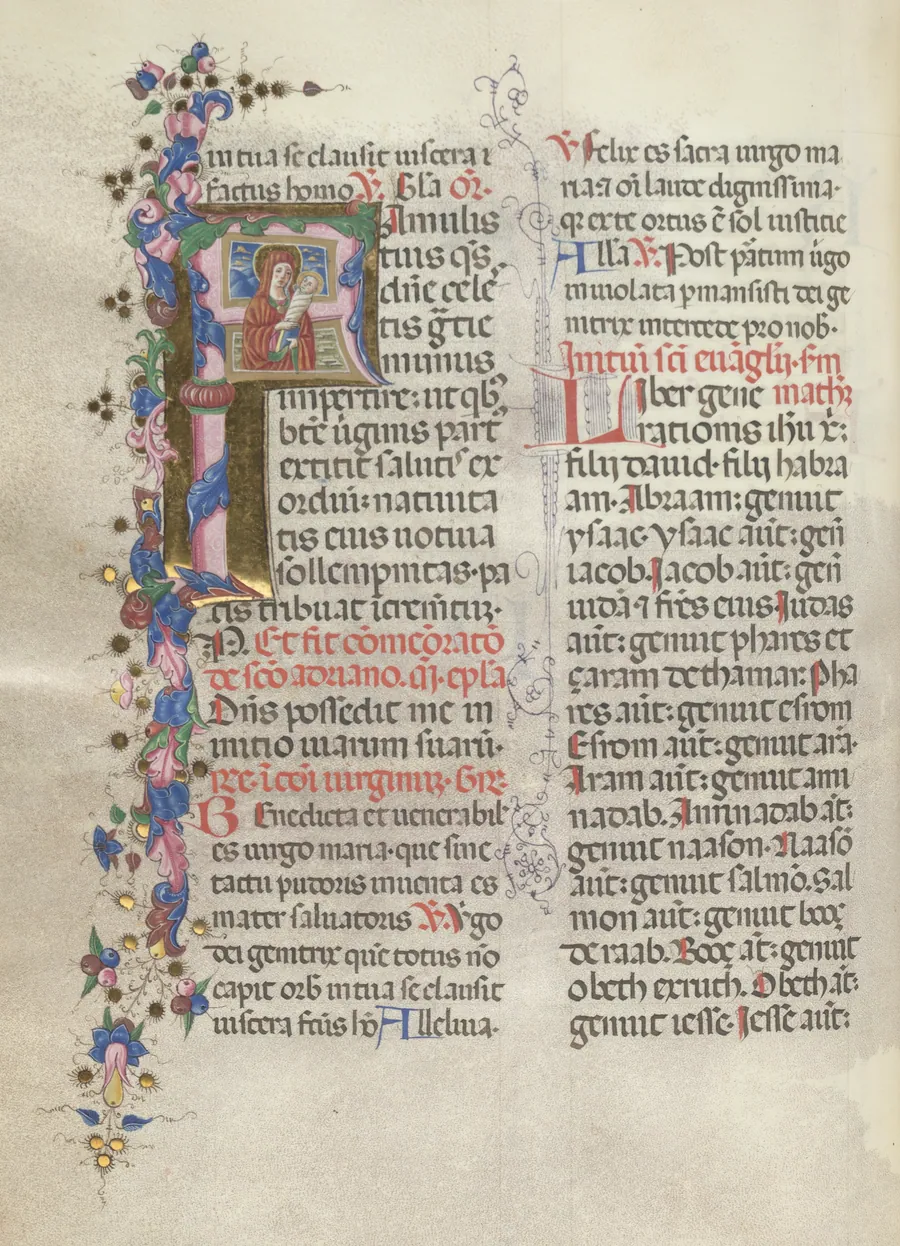 in tua se clausit viscera ⁊
factus homo. V. Gl̄a Or̄.
FAmulis
tuis qs̄.
dn̄e cele
tis gr̄tie
munus
impertire: ut qb᷒
btē v̄ginis part᷒
extitit saluti᷒ ex
ordiū: nativita
tis eius votiva
sollempnitas. pa
cis tribuat īcrem̄tuꝫ.
N. Et fit cōmeōratō
de scō adriano. qī. epl̄a
Dn̄s possedit me in
initio viarum suarū.
re. ī cōi virginuꝫ. Grꝫ.
BEnedicta et venerabil᷒
es virgo maria. que sine
tactu pudoris inventa es
mater salvatoris V. Virgo
dei genitrix quē totus nō
capit orb᷒ in tua se clausit
viscera fc̄us hō Alleluia.
V. Felix es sacra virgo ma
ria ⁊ oī laude dignissima.
qꝛ ex te ortus ē sol iusticie
Alla V. Post pātum v̄go
inviolata ꝑmansisti dei ge
nitrix intercede pro nob᷒.
Initiū sc̄i evāglīj. fm̄
Liber gene math̄ꝫ
rationis ih̄u xp̄i:
filij david. filij habra
am. Abraam: genuit
ysaac. Ysaac aūt: gen̄
iacob. Jacob aūt: gen̄
iudā ⁊ fr̄es eius. Judas
aūt: genuit phares et
çaram de thamar. Pha
res aūt: genuit esrom
Esrom aūt: genuit arā.
Aram aūt: genuit ami
nadab. Aminadab āt:
genuit naason. Naasō
aūt: genuit salmō. Sal
mon aūt: genuit booç
de raab. Booç āt: genuit
obeth ex ruth. Obeth āt:
genuit iesse. Jesse aūt: